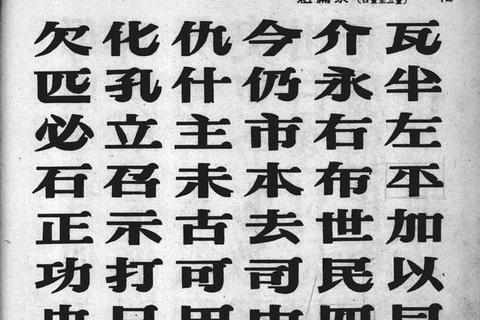 欠化仇今介瓦
匹孔什仍永半
必立主市右左
石召未本布平
正示古去世加
功打可司民以